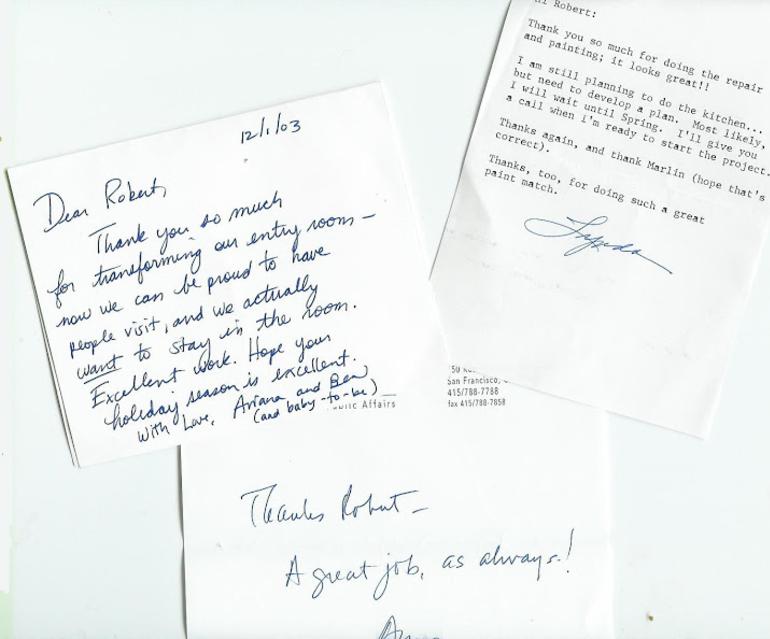 12/1/03
Dear Robert,
Thank you so much
for transforming our entry room –
now we can be proud to have
people visit, and we actually
want to stay in the room.
Excellent work. Hope your
holiday season is excellent.
With Love, Ariana and Ben
(and baby-to-be)
Robert:
Thank you so much for doing the repair
and painting; it looks great!!
I am still planning to do the kitchen...
but need to develop a plan. Most likely,
I will wait until Spring. I'll give you
a call when I'm ready to start the project.
Thanks again, and thank Marlin (hope that's
correct).
Thanks, too, for doing such a great
paint match.
Affairs
50
San Francisco,
415/788-7788
fax 415/788-7858
Thanks Robert –
A great job, as always!